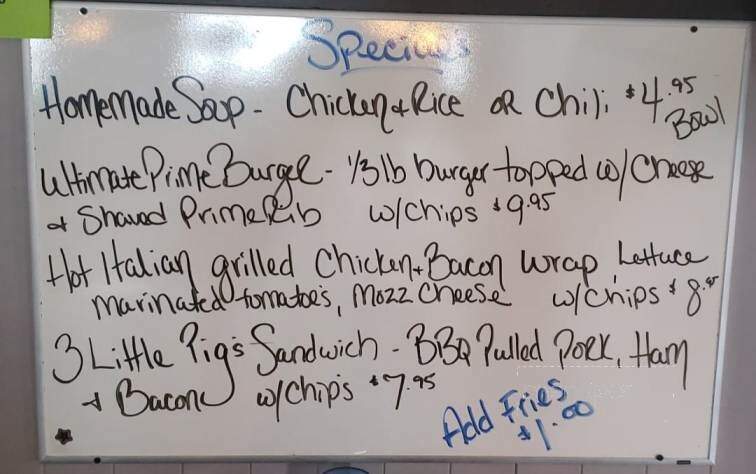 Specials
Homemade Soup - Chicken + Rice OR Chili $4.95
Bowl
Ultimate Prime Burger - 1/3 lb burger topped w/ Cheese
+ Shaved Prime Rib w/chips $9.95
Hot Italian grilled Chicken + Bacon Wrap, Lettuce
marinated tomatoe's, Mozz Cheese w/chips $8.95
3 Little Pig's Sandwich - BBQ Pulled Pork, Ham
+ Bacon w/chips $7.95
Add Fries
$1.00